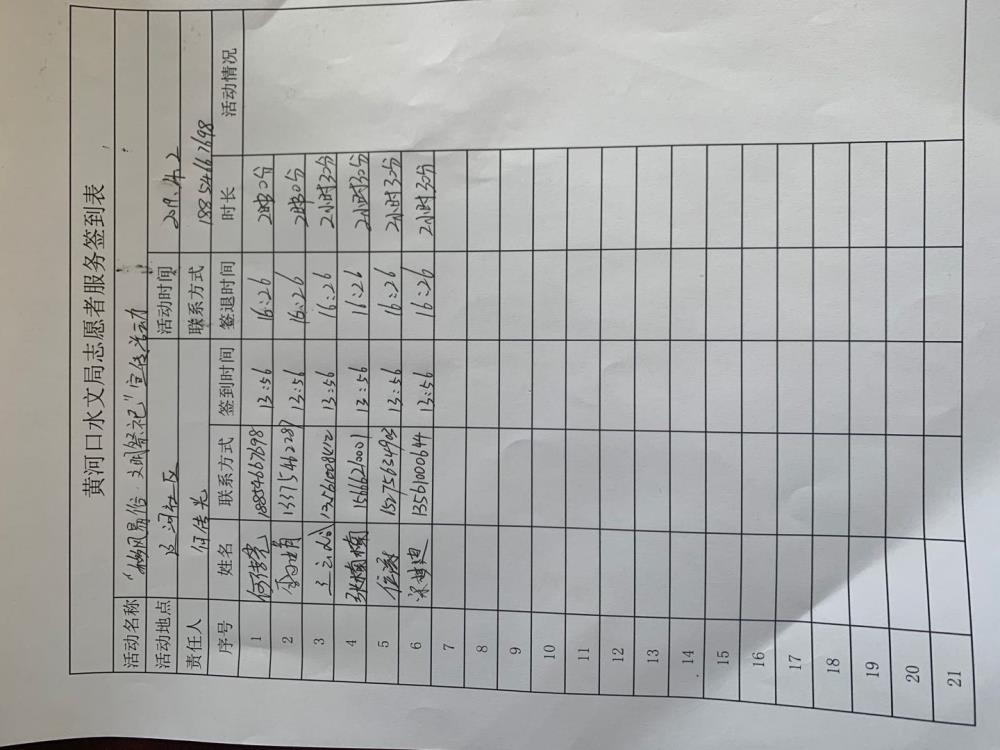 黄河口水文局志愿者服务签到表
活动名称 “移风易俗、文明祭祀”宣传活动
活动地点 活动时间 2019.4.2
责任人 何传光 联系方式 18854667698
序号 姓名 联系方式 签到时间 签退时间 时长 活动情况
1 何传光 18854667698 13:56 16:26
2 13375462287 13:56 16:26
3 13:56 16:26 2小时30分
4 张楠楠 15666210001 13:56 16:26 2小时30分
5 13:56 16:26 2小时30分
6 13561000644 13:56 16:26 2小时30分
7
8
9
10
11
12
13
14
15
16
17
18
19
20
21